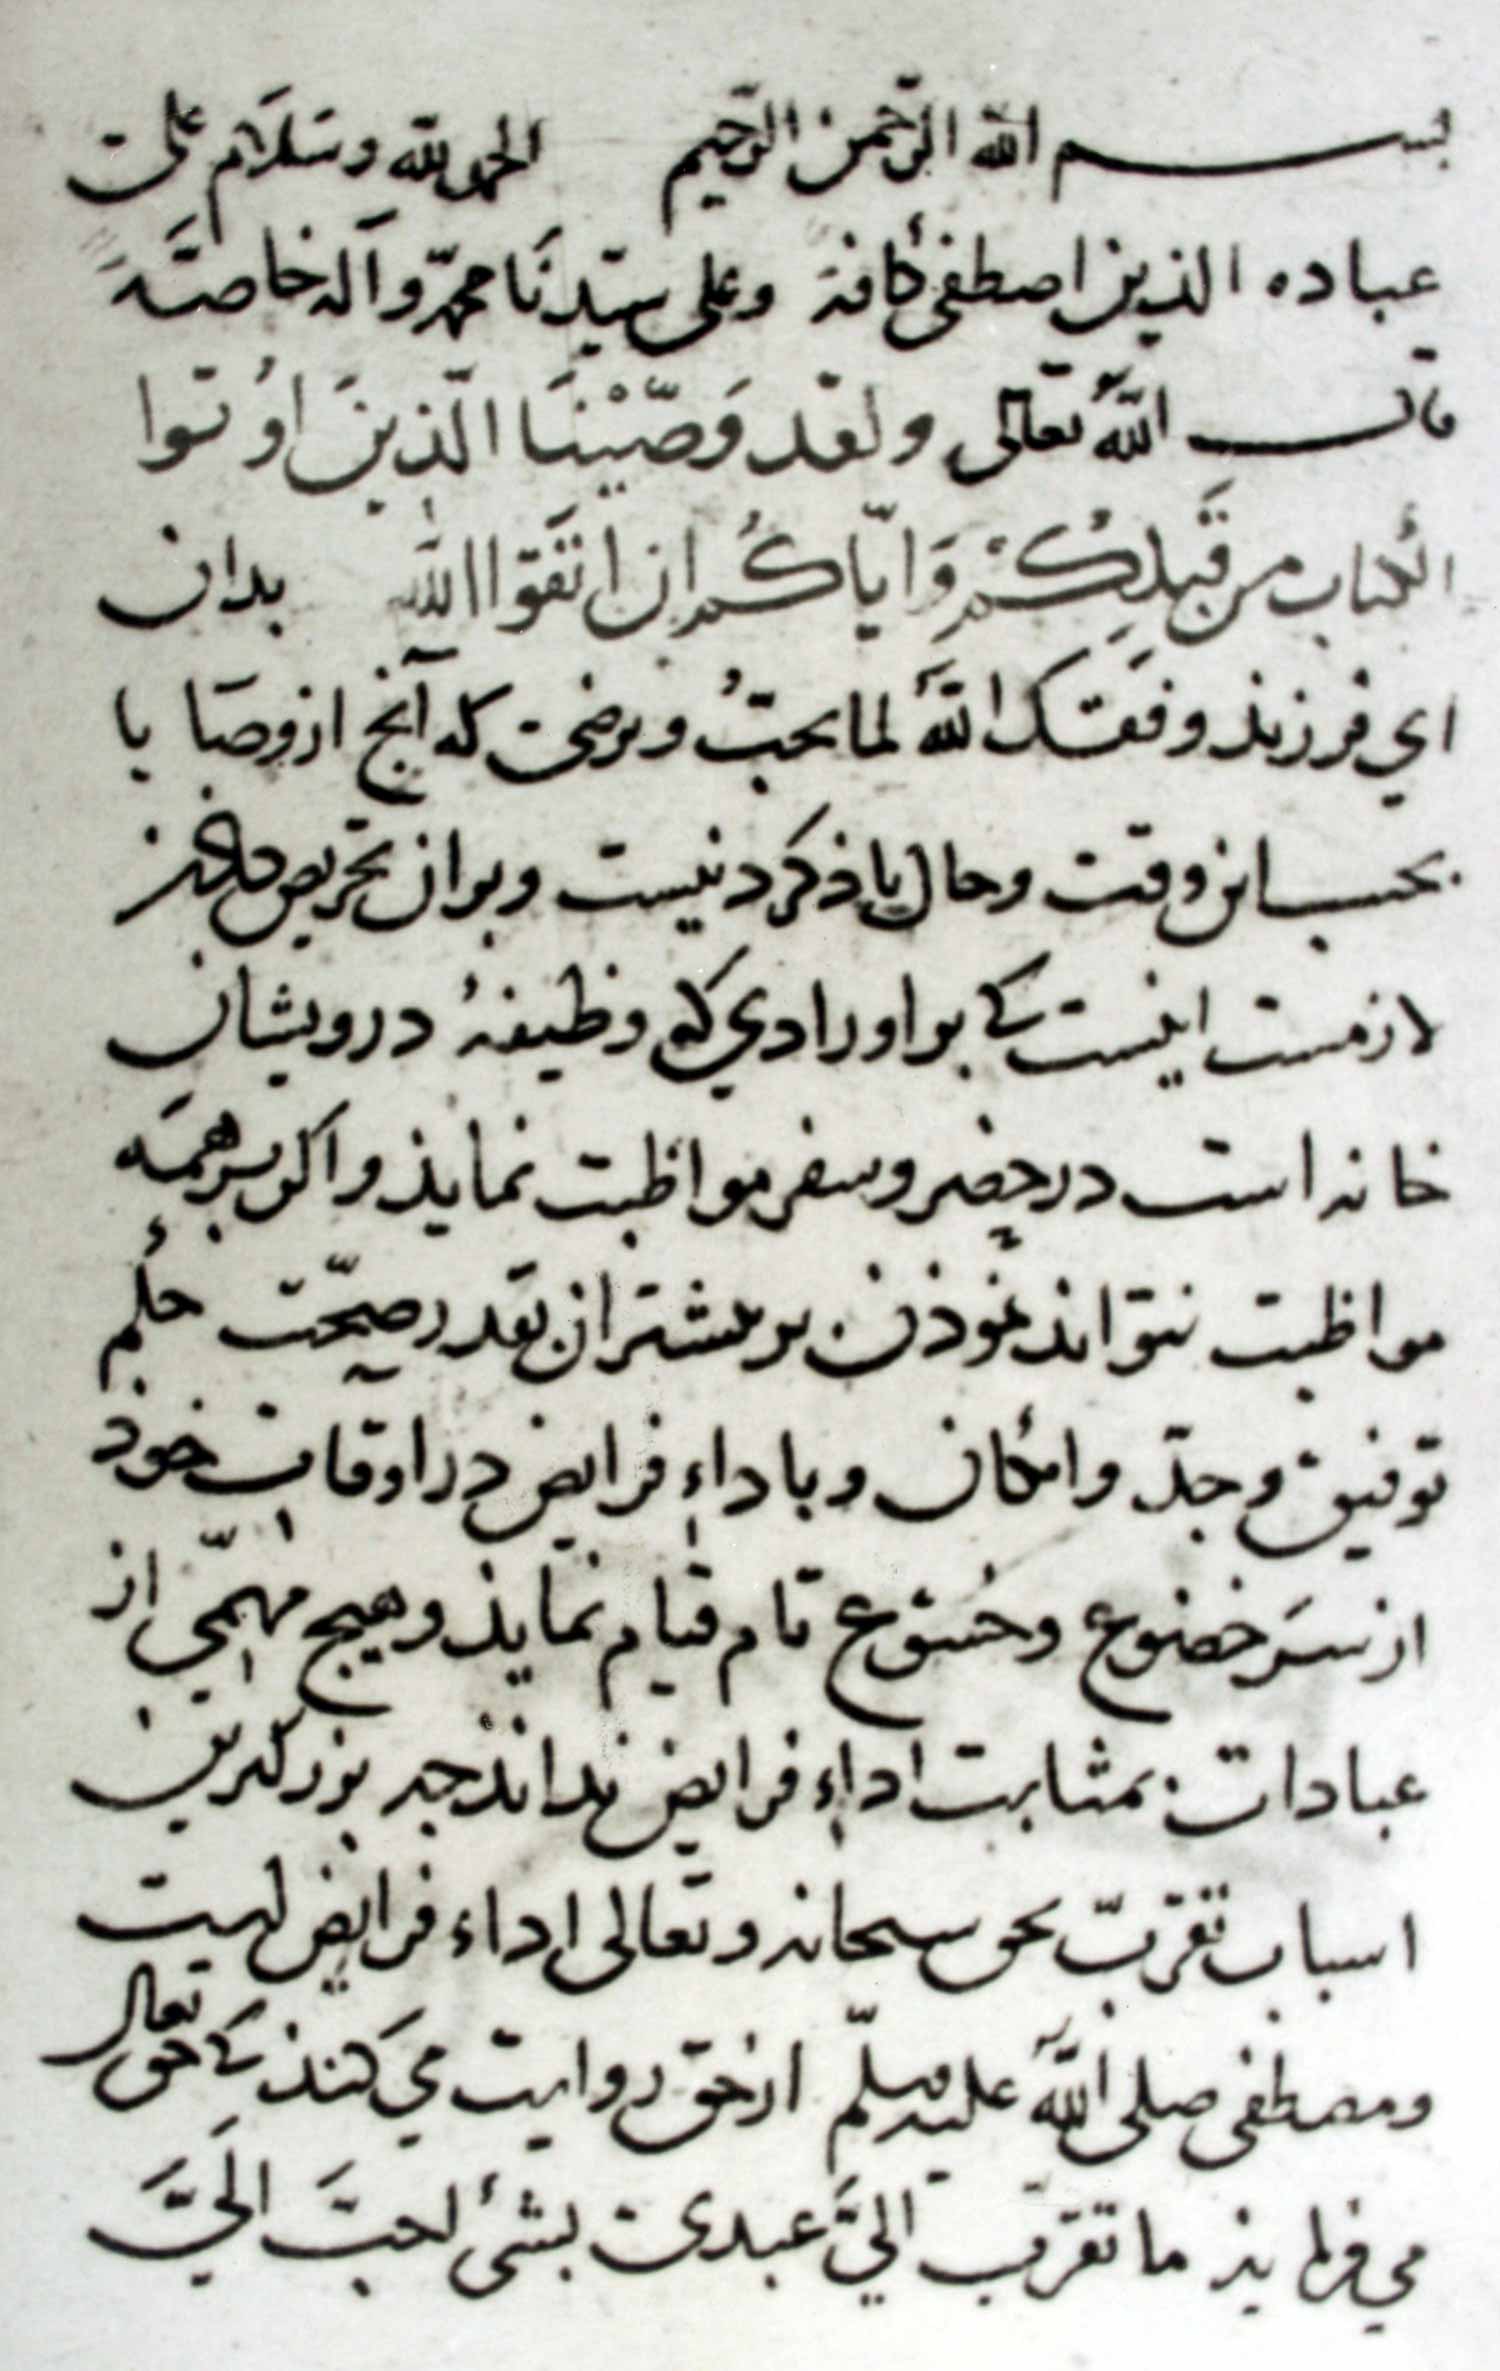 بسم الله الرّحمن الرّحیم الحمد لله وسَلَام علی
عباده الذین اصطفی کافة وعلی سیّدنَا محمّد وآله خاصَّةً
قال اللّٰه تعالی ولقد وَصَّیْنَا الَّذِینَ اوُتوا
الکتاب من قَبلِکُمْ وَایّاکُم ان اتَّقوا اللّٰه بدان
ای فرزند وفقک اللّٰهُ لما یحبُّ ویرضی که آنچ از وصَایا
بحسب این وقت وحال یاذ کردنیست وبران تحریص
لازمست اینست کی بر اورادی که وظیفهٔ درویشان
خانه است در حضر وسفر مواظبت نمایذ واکر بر همَه
مواظبت نتواند نموذن بر بیشتر ان بقدر صحّت حُلم
توفیق وجدّ وامکان وباداءِ فرایض در اوقات خوذ
از سَر خضوع وخشوع تام قیام نمایذ وهیچ مهمّی از
عبادات بمثابت اداءِ فرایض نداند جه بزرکترین
اسباب تقرّب بحق سبحانه وتعالی اداء فرایض
ومصطفی صلی اللّٰه علیه وسلّم از حق روایت می کنذ کی حق تعالی
می فرمایذ ما تقرّب الیَّ عبدی بشئ احبَّ الَیَّ